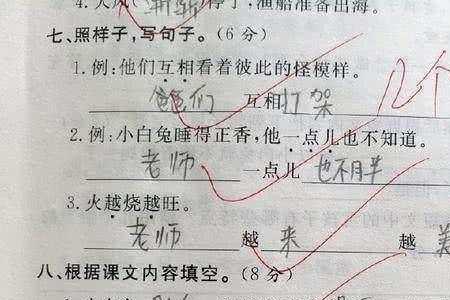 4.大风(渐渐)停了,渔船准备出海。
七、照样子,写句子。(6分)
1.例:他们互相看着彼此的怪模样。
爸爸们 互相打架
2.例:小白兔睡得正香,他一点儿也不知道。
老师 一点儿 也不胖
3.火越烧越旺。
老师 越 来 越
八、根据课文内容填空。(8分)